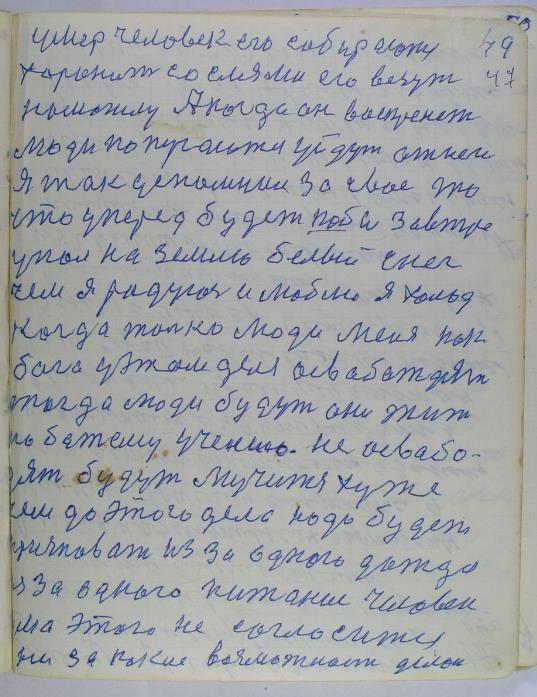 49
47
умер человек его собираютя
харонит со слязами его везут
намогилу А когда он воспренет
люди попугаются уйдут отнего
Я так
за свое то
что уперед будет
завтре
упал на землю белый снег
чем я радуюся и люблю я холод
когда толко люди меня как
бога уэтом деле освабаждят
тогда люди будут они жит
по бажему учению. не освабо-
дят будут мучится хуже
чем до этого дела нодо будет
из за одного дождя
за одного китание человек
на этого не согласится
за какие возможности делаи